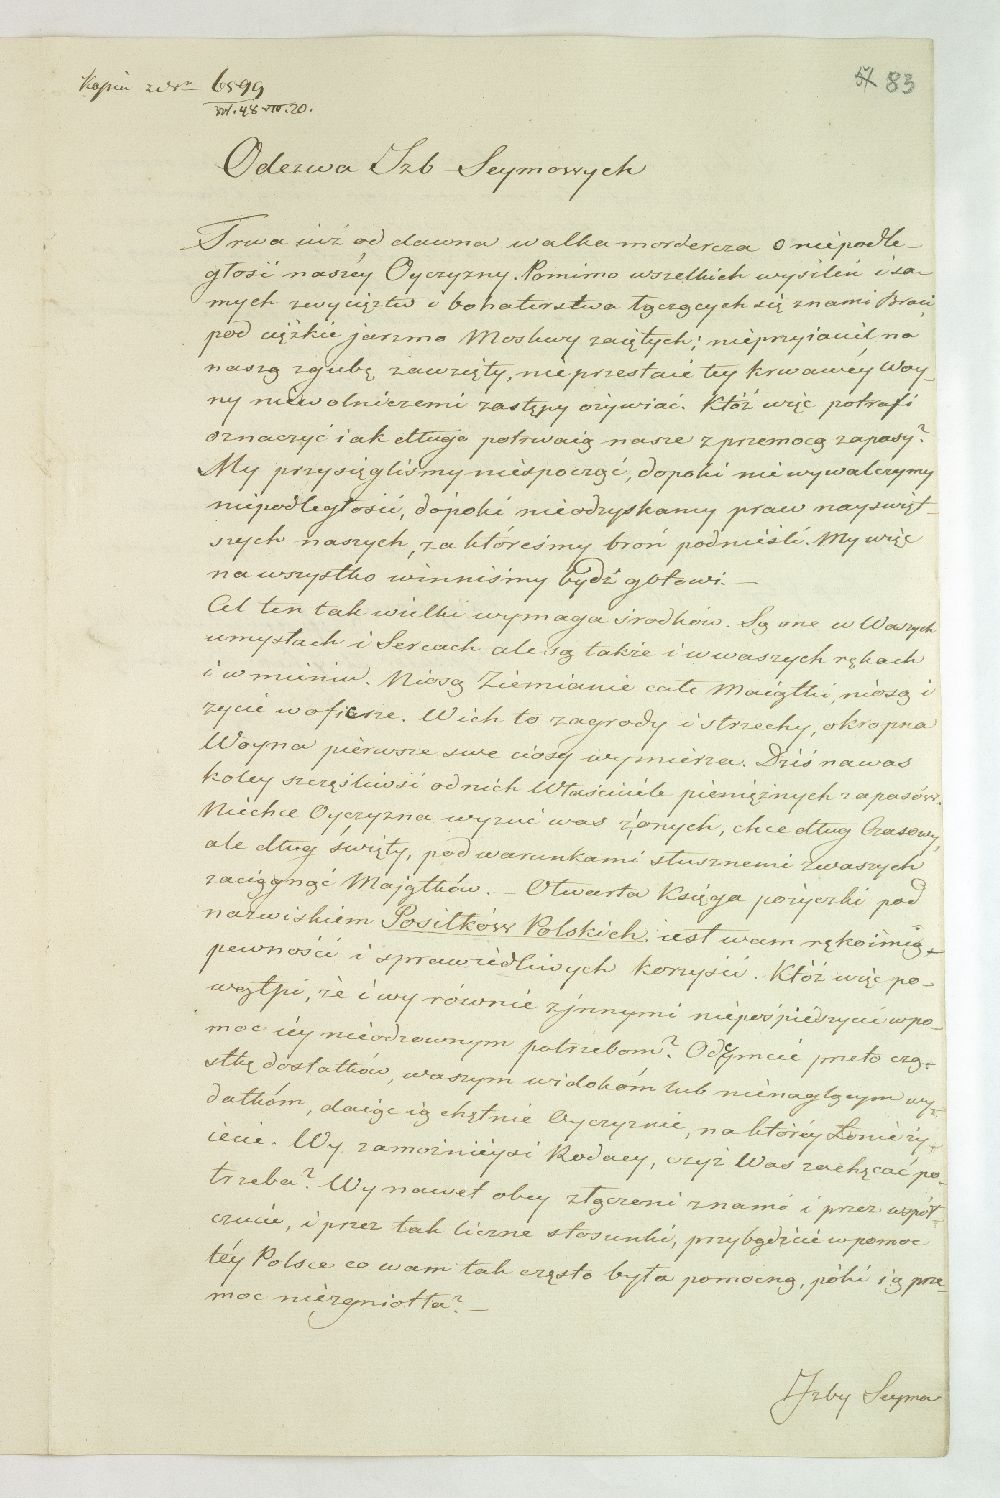 Kopia zdr 6599
57 83
XVI.48-VII.20.
Odezwa Izb Seymowych
Trwa iuż od dawna walka mordercza o niepodle-
głość naszéy Oyczyzny. Pomimo wszelkich wysileń i sa-
mych zwycięztw i bohaterstwa łączących się znami Braci
pod ciężkie jarzmo Moskwy zaiętych; nieprzyiaciel na
naszą zgubę zawzięty, nie przestaie tey krwawéy Woy-
ny niewolniczemi zastępy ożywiać. Któż więc potrafi
oznaczyć iak długo potrwaią nasze z przemocą zapasy?
My przysięgliśmy niespocząć, dopoki nie wywalczymy
niepodległości, dopoki nieodzyskamy praw nayświęt-
szych naszych, za któreśmy broń podnieśli. My więc
na wszystko winniśmy bydź gotowi. —
Cel ten tak wielki wymaga środków. Są one w Waszych
umysłach i Sercach ale są także i w waszych rękach
i w mieniu. Niosą Ziemianie całe Maiątki, niosą i
życie w ofierze. W ich to zagrody i strzechy, okropna
Woyna pierwsze swe ciosy wymierza. Dziś na was
koley szczęśliwsi od nich Właściciele pieniężnych zapasów.
Niechce Oyczyzna wyzuć was z onych, chce dług Czasowy
ale dług święty, pod warunkami słusznemi z waszych
zaciągnąć Majątków. — Otwarta Księga pożyczki pod
nazwiskiem Posiłków Polskich, iest wam rękoimią
pewności i sprawiedliwych korzyści. Któż więc po-
wątpi, że i wy równie z jnnymi niepośpieszycie w po-
moc iéy nieodzownym potrzebom? Odeymcie przeto czą-
stkę dostatków, waszym widokóm lub nienaglącym wy-
datkóm, daiąc ią chętnie Oyczyznie, na któréy Łonie ży-
iecie. Wy zamożnieysi Rodacy, czyż Was zachęcać po-
trzeba? Wy nawet obcy złączeni znami i przez współ-
czucie, i przez tak liczne stosunki, przybądźcie w pomoc
téy Polsce co wam tak często była pomocną, póki ią prze-
moc niezgniotła? —
Izby Seymo